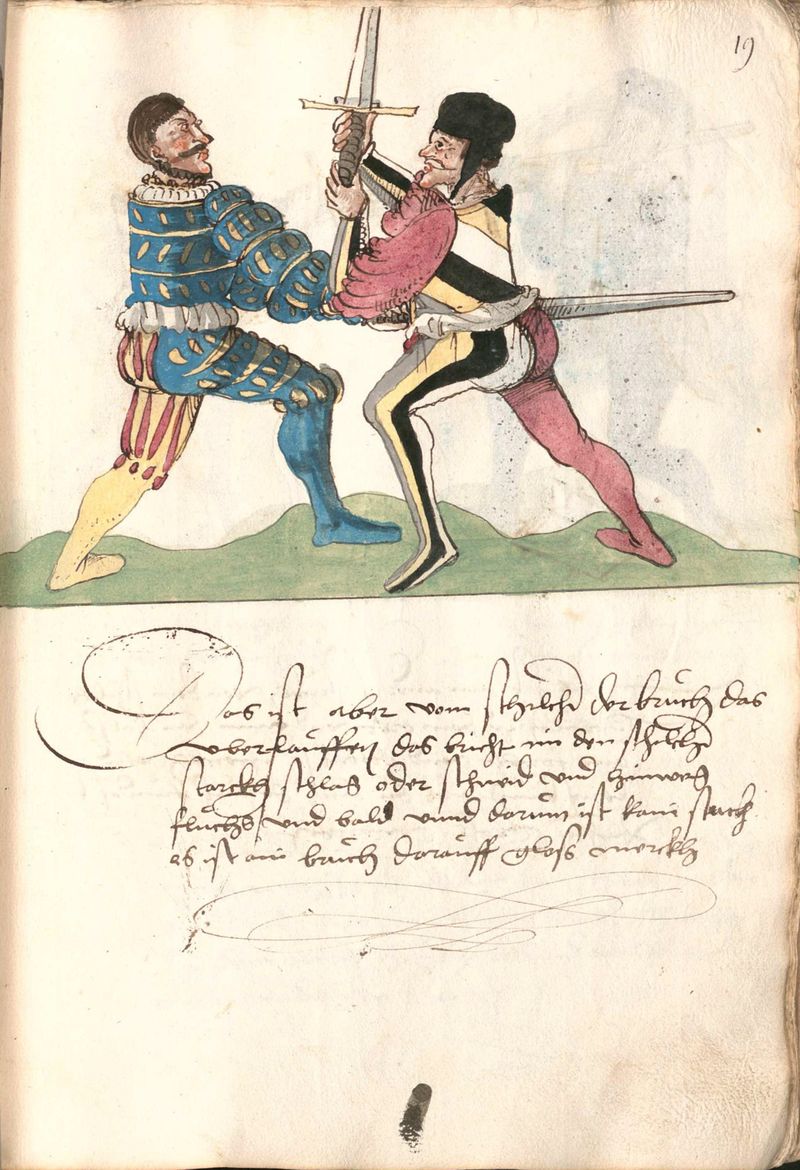 19
Das ist aber vom schilcher der bruch das
uberlauffen das bricht im den schilcher
starckh schlag oder schneid und hinweg
fluchs und bald unnd darum ist kain stuckh
es ist ain bruch darauff gloss merckh